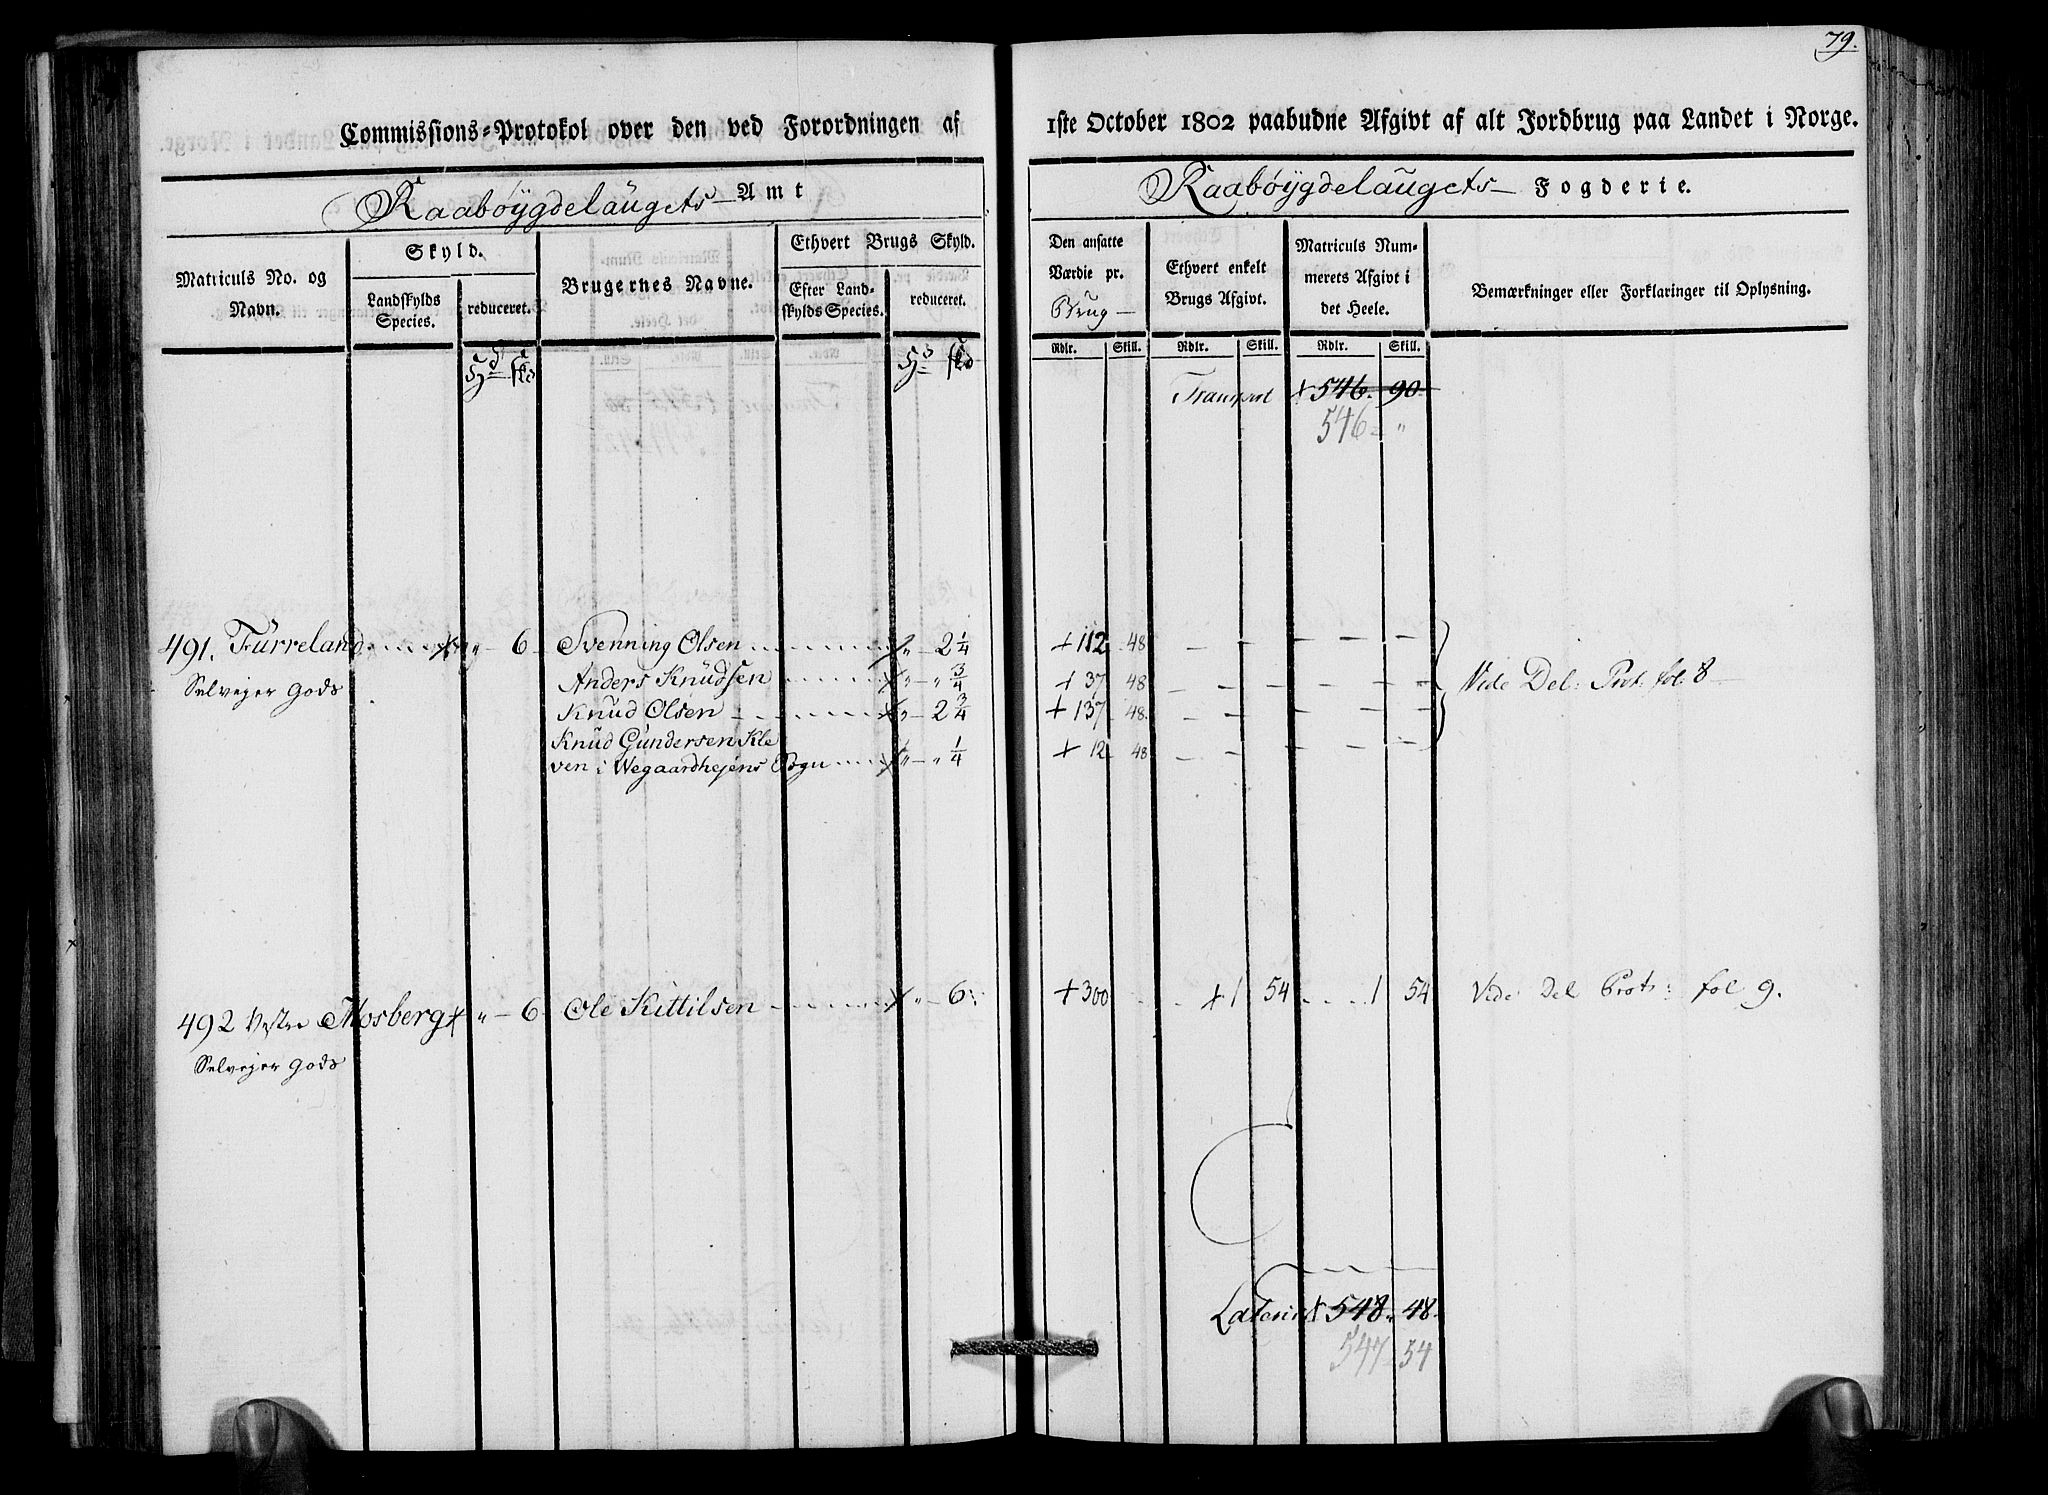 79.
Commissions-Protokol over den ved Forordningen af 1ste October 1802 paabudne Afgivt af alt Jordbrug paa Landet i Norge.
Raabøygdelaugets Amt
Raabøygdelaugets Fogderie.
Matriculs No. og Navn.
Skyld.
Landskylds Species.
reduceret.
Brugernes Navne.
Ethvert Brugs Skyld.
Efter Landskylds Species.
reduceret.
Den ansatte Værdie pr. Brug
Ethvert enkelt Brugs Afgivt.
Matriculs Nummerets Afgivt i det Heele.
Bemærkninger eller Forklaringer til Oplysning.
Rdlr. Skill. Rdlr. Skill. Rdlr. Skill.
Transport + 546. 90.
546 - "
491. Furreland " 6 Svenning Olsen " 2 1/4 + 112 48
Selvejer Gods Anders Knudsen " " 3/4 + 37 48 Vide Del: Prot: fol: 8
Knud Olsen " 2 3/4 + 137 48
Knud Gundersen Kle
ven i Wegaardhejens Sogn " " 1/4 + 12 48
492 Vestre Mosberg + " 6 Ole Kittilsen + " 6 + 300 + 1 54 1 54 Vide Del Prot: fol 9.
Selvejer Gods
Lateris + 548. 48.
547 - 54